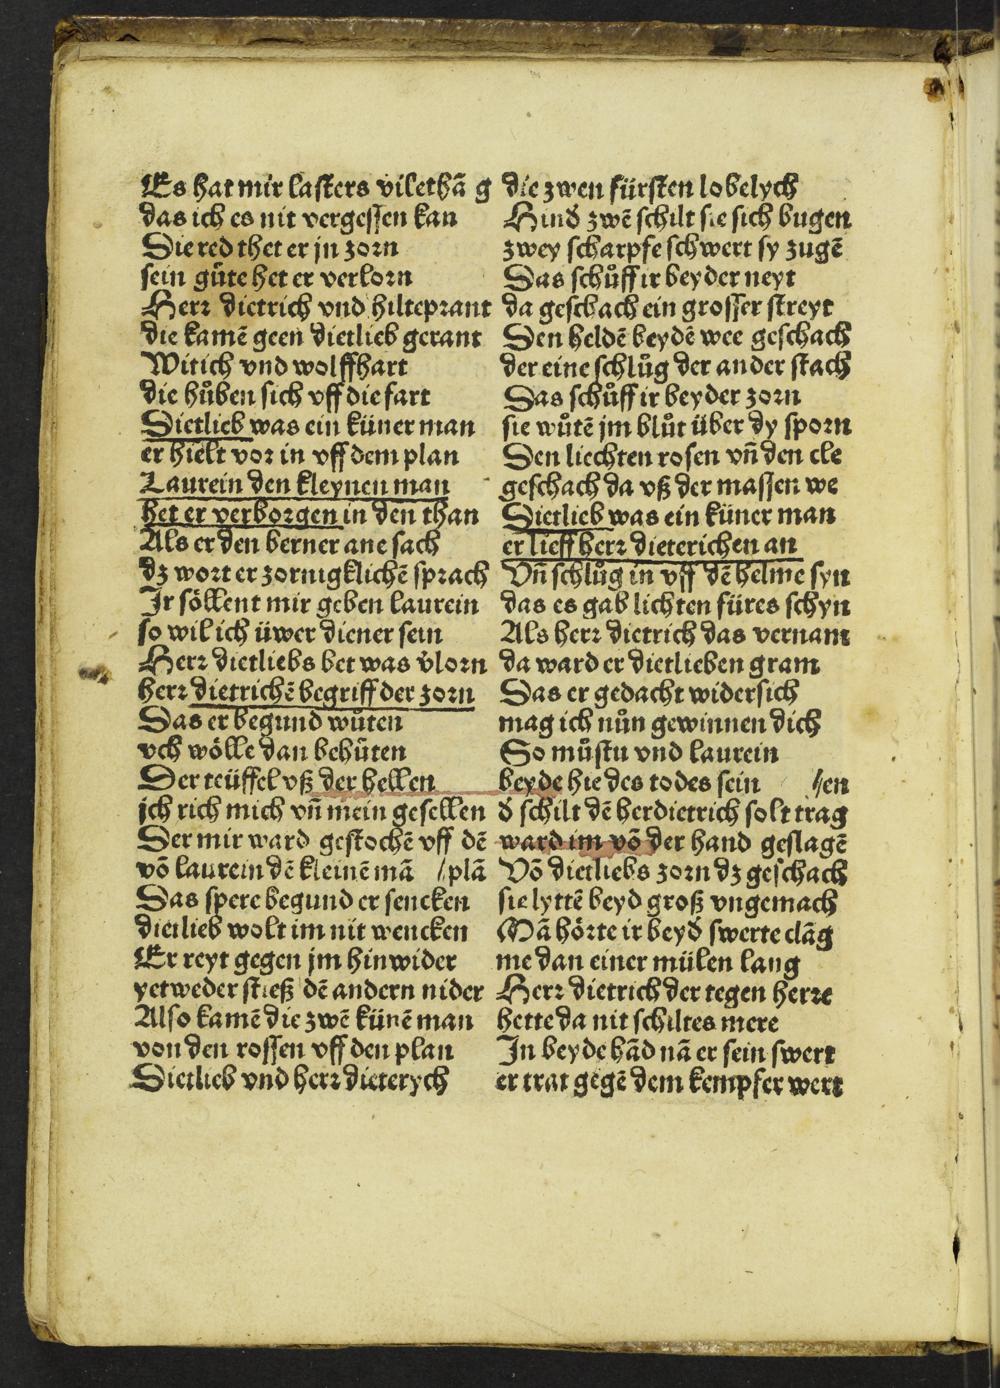 Es hat mir lasters vilethā g
das ich es nit vergessen kan
Die red thet er jn zorn
sein gůte het er verlorn
Herr dietrich vnd hilteprant
die kamē geen dietlieb gerant
Witich vnd wolffhart
die hůben sich vff die fart
Dietlieb was ein küner man
er hielt vor in vff dem plan
Laurein den kleynen man
het er verborgen in den than
Als er den berner ane sach
dz wort er zornigklichē sprach
Ir söllent mir geben laurein
so wil ich üwer diener sein
Herr dietliebs bet was v̄lorn
herr dietrichē begriff der zorn
Das er begund wůten
vch wölle dan behůten
Der teüffel vß der hellen
ich rich mich vn̄ mein gesellen
Der mir ward gestochē vff dē
vō laurein dē kleinē mā //plā
Das spere begund er sencken
dietlieb wolt im nit wencken
Er reyt gegen jm hinwider
yetweder stieß dē andern nider
Also kamē die zwē künē man
von den rossen vff den plan
Dietlieb vnd herr dieterych
die zwen fürsten lobelych
Hind̄ zwē schilt sie sich bugen
zwey scharpfe schwert sy zugē
Das schůff ir beyder neyt
da geschach ein grosser streyt
Den heldē beydē wee geschach
der eine schlůg der ander stach
Das schůff ir beyder zorn
sie wůtē jm blůt über dy sporn
Den liechten rosen vn̄ den cle
geschach da vß der massen we
Dietlieb was ein küner man
er lieff herr dieterichen an
Vn̄ schlůg in vff dē helme syn
das es gab lichten füres schyn
Als herr dietrich das vernam
da ward er dietlieben gram
Das er gedacht widersich
mag ich nůn gewinnen dich
So můstu vnd laurein
beyde hie des todes sein //en
d̄ schilt dē herdietrich solt trag
ward im vō der hand geslagē
Vō dietliebs zorn dz geschach
sie lyttē beyd groß vngemach
Mā hörte ir beyd̄ swerte clāg
me dan einer mülen lang
Herr dietrich der tegen herre
hette da nit schiltes mere
In beyde hād nā er sein swert
er trat gegē dem kempfer wert